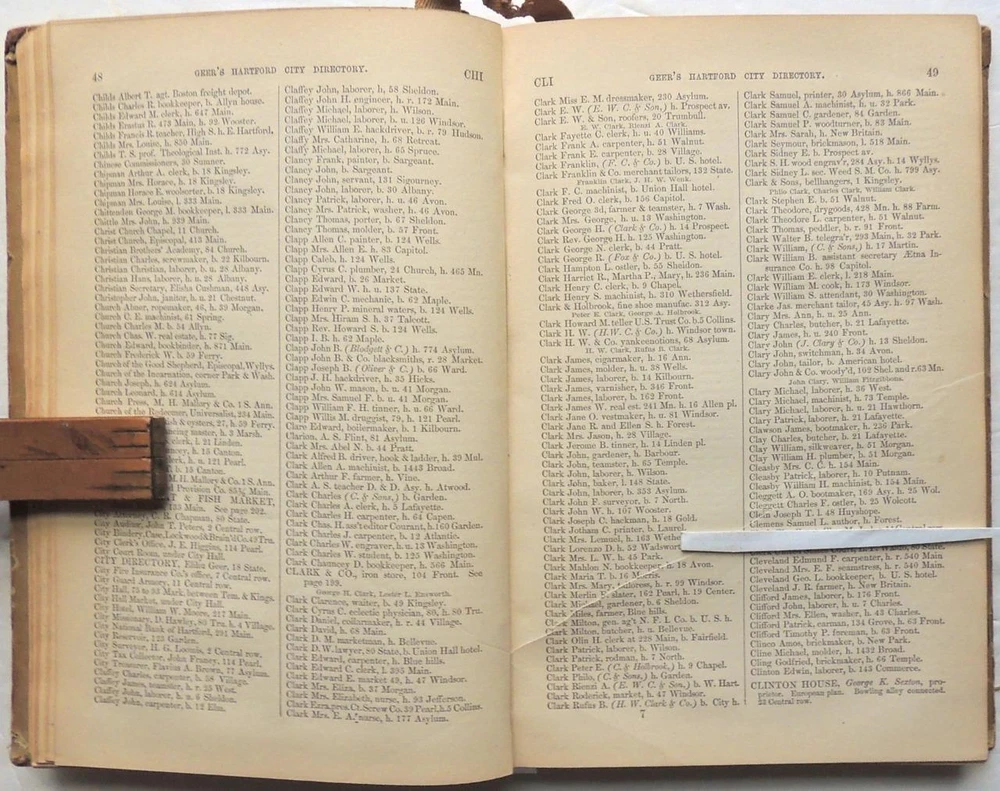 48
GEER'S HARTFORD CITY DIRECTORY.
CHI
Childs Albert T. agt. Boston freight depot.
Childs Charles R. bookkeeper, b. Allyn house.
Childs Edward M. clerk, h. 647 Main.
Childs Erastus R. 473 Main, h. 92 Wooster.
Childs Francis R. teacher, High S. h. E. Hartford,
Childs Mrs. Louise, h. 830 Main.
Childs T. S. prof. Theological Inst. h. 772 Asy.
Chinese Commissioners, 20 Sumner.
Chipman Arthur A. clerk, b. 18 Kingsley.
Chipman Mrs. Horace, h. 18 Kingsley.
Chipman Horace E. woolsorter, b. 18 Kingsley.
Chipman Mrs. Louise, l. 333 Main.
Chittenden George M. bookkeeper, l. 333 Main.
Chittle Mrs. John, h. 939 Main.
Christ Church Chapel, 11 Church.
Christ Church, Episcopal, 413 Main.
Christian Brothers' Academy, 84 Church.
Christian Charles, screwmaker, b. 22 Kilbourn.
Christian Christian, laborer, b. u. 28 Albany.
Christian Hans, laborer, h. u. 28 Albany.
Christian Secretary, Elisha Cushman, 448 Asy.
Christopher John, janitor, h. u. 21 Chestnut.
Church Abner, ropemaker, 46, h. 39 Morgan.
Church C. E. machinist, 61 Spring.
Church Charles M. b. 54 Allyn.
Church Chas. W. real estate, h. 77 Sig.
Church Edward, bookbinder, h. 871 Main.
Church Frederick W. b. 59 Ferry.
Church of the Good Shepherd, Episcopal, Wyllys.
Church of the Incarnation, corner Park & Wash.
Church Joseph, h. 624 Asylum.
Church Leonard, h. 614 Asylum.
Church Press, M. H. Mallory & Co. 1 S. Ann.
Church of the Redeemer, Universalist, 234 Main.
& oysters, 27, h. 59 Ferry.
master, b. 3 Marsh.
clerk, l. 21 Linden.
h. 15 Canton.
h. u. 121 Pearl.
15 Canton.
M. H. Mallory & Co. 1 S. Ann.
Provision Co. 85¾ Main.
& FISH MARKET,
Main. See page 202.
Chapman, 80 State.
City Auditor, John T. Peters, 2 Central row.
City Bindery, Case, Lockwood & Brain'd Co. 49 Tru.
City Clerk's Office, J. E. Higgins, 114 Pearl.
City Court Room, under City Hall.
CITY DIRECTORY, Elihu Geer, 18 State.
City Fire Insurance Co's office, 7 Central row.
City Guard Armory, 11 Central row.
City Hall, 75 to 83 Mark. bet Tem. & Kings.
City Hall Market, under City Hall.
City Hotel, William W. Moore, 217 Main.
City Missionary, D. Hawley, 80 Tru. h. 4 Village.
City National Bank of Hartford, 291 Main.
City Reservoir, 122 Garden.
City Surveyor, H. G. Loomis, 2 Central row.
City Tax Collector, John Franey, 114 Pearl.
City Treasurer, Flavius A. Brown, 77 Asylum.
Claffey Charles, carpenter, h. 58 Village.
Claffey James, teamster, h. r. 53 West.
Claffey John, laborer, h. u. 6 Sheldon.
Claffey John, carpenter, h. 12 Elm.
Claffey John, laborer, h. 58 Sheldon.
Claffey John H. engineer, h. r. 172 Main.
Claffey Michael, laborer, h. Wilson.
Claffey Michael, laborer, h. u. 126 Windsor.
Claffey William E. hackdriver, b. r. 79 Hudson.
Claffy Mrs. Catharine, h. 68 Retreat.
Claffy Michael, laborer, h. 65 Spruce.
Clancy Frank, painter, b. Sargeant.
Clancy John, b. Sargeant.
Clancy John, servant, 131 Sigourney.
Clancy John, laborer, b. 30 Albany.
Clancy Patrick, laborer, h. u. 46 Avon.
Clancy Mrs. Patrick, washer, h. 46 Avon.
Clancy Thomas, porter, b. 67 Sheldon.
Clancy Thomas, molder, b. 57 Front.
Clapp Allen C. painter, b. 124 Wells.
Clapp Mrs. Allen E. h. 83 Capitol.
Clapp Caleb, h. 124 Wells.
Clapp Cyrus C. plumber, 24 Church, h. 465 Mn.
Clapp Edward, b. 26 Market.
Clapp Edward W. h. u. 137 State.
Clapp Edwin C. mechanic, b. 62 Maple.
Clapp Henry P. mineral waters, b. 124 Wells.
Clapp Mrs. Hiram S. h. 37 Talcott.
Clapp Rev. Howard S. b. 124 Wells.
Clapp I. B. h. 62 Maple.
Clapp John B. (Blodgett & C.) h. 774 Asylum.
Clapp John B. & Co. blacksmiths, r. 28 Market.
Clapp Joseph B. (Olicer & C.) b. 66 Ward.
Clapp J. H. hackdriver, h. 35 Hicks.
Clapp John W. mason, b. u. 41 Morgan.
Clapp Mrs. Samuel F. b. u. 41 Morgan.
Clapp William F. H. tinner, h. u. 66 Ward.
Clapp Willis M. druggist, 79, h. 121 Pearl.
Clare Edward, boilermaker, h. 1 Kilbourn.
Clarion, A. S. Flint, 81 Asylum.
Clark Mrs. Abel N. b. 44 Pratt.
Clark Alfred R. driver, hook & ladder, h. 39 Mul.
Clark Allen A. machinist, b. 1443 Broad.
Clark Arthur F. farmer, h. Vine.
Clark A. S. teacher D. & D. Asy. h. Atwood.
Clark Charles (C. & Sons,) h. Garden.
Clark Charles A. clerk, h. 5 Lafayette.
Clark Charles H. carpenter, h. 64 Capen.
Clark Chas. H. ass't editor Courant, h. 160 Garden.
Clark Charles J. carpenter, b. 12 Atlantic.
Clark Charles W. engraver, h. u. 13 Washington.
Clark Charles W. student, b. 125 Washington.
Clark Chauncey D. bookkeeper, h. 566 Main.
CLARK & CO., iron store, 104 Front. See
page 139.
George H. Clark, Lester L. Ensworth.
Clark Clarence, waiter, b. 49 Kingsley.
Clark Cyrus C. eclectic physician, 80, h. 80 Tru.
Clark Daniel, collarmaker, h. r. 44 Village.
Clark David, h. 68 Main.
Clark D. M. marketman, h. Bellevue.
Clark D. W. lawyer, 80 State, b. Union Hall hotel.
Clark Edward, carpenter, h. Blue hills.
Clark Edward C. clerk, h. 395 Main.
Clark Edward E. market 49, h. 47 Windsor.
Clark Mrs. Eliza, b. 37 Morgan.
Clark Mrs. Elizabeth, nurse, h. 93 Jefferson.
Clark Ezra, pres. Ct. Screw Co. 39 Pearl, h. 5 Collins.
Clark Mrs. E. A. nurse, h. 177 Asylum.
CLI
GEER'S HARTFORD CITY DIRECTORY.
49
Clark Miss E. M. dressmaker, 230 Asylum.
Clark E. W. (E. W. C. & Son,) h. Prospect av.
Clark E. W. & Son, roofers, 20 Trumbull.
E. W. Clark, Rienzi A. Clark.
Clark Fayette C. clerk, b. u. 40 Williams.
Clark Frank A. carpenter, b. 51 Walnut.
Clark Frank E. carpenter, b. 28 Village.
Clark Franklin, (F. C. & Co.) b. U. S. hotel.
Clark Franklin & Co. merchant tailors, 152 State.
Franklin Clark, J. H. W. Wenk.
Clark F. C. machinist, b. Union Hall hotel.
Clark Fred O. clerk, b. 156 Capitol.
Clark George 8d, farmer & teamster, h. 7 Wash.
Clark Mrs. George, h. u. 13 Washington.
Clark George H. (Clark & Co.) h. 14 Prospect.
Clark Rev. George H. h. 125 Washington.
Clark George N. clerk, b. 44 Pratt.
Clark George R. (Fox & Co.) b. U. S. hotel.
Clark Hampton L. ostler, b. 55 Sheldon.
Clark Harriet R., Martha P., Mary, h. 236 Main.
Clark Henry C. clerk, b. 9 Chapel.
Clark Henry S. machinist, b. 310 Wethersfield.
Clark & Holbrook, fine shoe manufac. 312 Asy.
Peter E. Clark, George A. Holbrook.
Clark Howard M. teller U. S. Trust Co. b. 5 Collins.
Clark H. W. (H. W. C. & Co.) b. Windsor town.
Clark H. W. & Co. yankeenotions, 68 Asylum.
H. W. Clark, Rufus B. Clark.
Clark James, cigarmaker, h. 16 Ann.
Clark James, molder, h. u. 38 Wells.
Clark James, laborer, b. 14 Kilbourn.
Clark James, varnisher, b. 346 Front.
Clark James, laborer, h. 162 Front.
Clark James W. real est. 241 Mn. h. 16 Allen pl.
Clark Jane O. vestmaker, h. u. 81 Windsor.
Clark Jane R. and Ellen S. h. Forest.
Clark Mrs. Jason, h. 28 Village.
Clark Jerome B. tinner, h. 14 Linden pl.
Clark John, gardener, b. Harbour.
Clark John, teamster, h. 65 Temple.
Clark John, laborer, h. Wilson.
Clark John, baker, l. 148 State.
Clark John, laborer, b. 353 Asylum.
Clark John F. surveyor, h. 7 North.
Clark John W. h. 107 Wooster.
Clark Joseph C. hackman, h. 18 Gold.
Clark Jotham C. printer, b. Laurel.
Clark Mrs. Lemuel, h. 163 Wethe
Clark Lorenzo D. h. 52 Wadswor
Clark Mrs. L. W. h. 45 Park.
Clark Mahlon N. bookkeeper, h. 18 Avon.
Clark Maria T. b. 16 Morris.
Clark Mrs. Mary, tailoress, h. r. 99 Windsor.
Clark Merlin F. slater, 162 Pearl, h. 19 Center.
Clark Michael, gardener, b. 6 Sheldon.
Clark Miles, farmer, Blue hills.
Clark Milton, gen. ag't N. F. I. Co. b. U. S. h.
Clark Milton, butcher, h. u. Bellevue.
Clark Olin H. clerk at 228 Main, b. Fairfield.
Clark Patrick, laborer, b. Wilson.
Clark Patrick, rodman, h. 7 North.
Clark Peter E. (C & Holbrook,) h. 9 Chapel.
Clark Philo, (C. & Sons,) h. Garden.
Clark Rienzi A. (E. W. C. & Son,) b. W. Hart.
Clark Roderick, market, h. 47 Windsor.
Clark Rufus B. (H. W. Clark & Co.) b. City h.
Clark Samuel, printer, 30 Asylum, h. 866 Main.
Clark Samuel A. machinist, h. u. 32 Park.
Clark Samuel C. gardener, 84 Garden.
Clark Samuel P. woodturner, b. 83 Main.
Clark Mrs. Sarah, h. New Britain.
Clark Seymour, brickmason, l. 518 Main.
Clark Sidney E. b. Prospect av.
Clark S. H. wood engrav'r, 284 Asy. h. 14 Wyllys.
Clark Sidney L. sec. Weed S. M. Co. h. 799 Asy.
Clark & Sons, bellhangers, 1 Kingsley.
Philo Clark, Charles Clark, William Clark.
Clark Stephen E. b. 51 Walnut.
Clark Theodore, drygoods, 428 Mn. h. 88 Farm.
Clark Theodore L. carpenter, h. 51 Walnut.
Clark Thomas, peddler, b. r. 91 Front.
Clark Walter B. telegra'r, 293 Main, h. 32 Park.
Clark William, (C. & Sons,) h. 17 Martin.
Clark William B. assistant secretary Ætna Insurance Co. h. 98 Capitol.
Clark William E. clerk, l. 218 Main.
Clark William M. cook, h. 173 Windsor.
Clark William S. attendant, 30 Washington.
Clarke Jas. merchant tailor, 45 Asy. h. 97 Wash.
Clary Mrs. Ann, h. u. 25 Ann.
Clary Charles, butcher, b. 21 Lafayette.
Clary James, h. u. 240 Front.
Clary John (J. Clary & Co.) h. 13 Sheldon.
Clary John, switchman, h. 34 Avon.
Clary John, tailor, b. American hotel.
Clary John & Co. wood'y'd, 102 Shel. and r. 63 Mn.
John Clary, William Fitzgibbons.
Clary Michael, laborer, h. 36 West.
Clary Michael, machinist, h. 73 Temple.
Clary Michael, laborer, h. u. 21 Hawthorn.
Clary Patrick, laborer, h. 21 Lafayette.
Clawson James, bootmaker, h. 236 Park.
Clay Charles, butcher, b. 21 Lafayette.
Clay William, silkweaver, b. 51 Morgan.
Clay William H. plumber, b. 51 Morgan.
Cleasby Mrs. C. C. h. 154 Main.
Cleasby Patrick, laborer, h. 10 Putnam.
Cleasby William H. machinist, b. 154 Main.
Cleggett A. O. bootmaker, 169 Asy. h. 25 Wol.
Cleggett Charles F. ostler, b. 25 Wolcott.
Clein Joseph T. l. 48 Huyshope.
Clemens Samuel L. author, h. Forest.
Cleveland Edmund F. carpenter, h. r. 540 Main.
Cleveland Mrs. E. F. seamstress, h. r. 540 Main.
Cleveland Geo. L. bookkeeper, b. U. S. hotel.
Cleveland J. R. farmer, h. New Britain.
Clifford James, laborer, b. 176 Front.
Clifford John, laborer, h. u. 7 Charles.
Clifford Mrs. Ellen, washer, h. 43 Charles.
Clifford Patrick, carman, 134 Grove, h. 63 Front.
Clifford Timothy P. foreman, b. 63 Front.
Clinco Amos, brickmaker, b. New Park.
Cline Michael, molder, h. 1432 Broad.
Cling Godfried, brickmaker, h. 66 Temple.
Clinton Edwin, laborer, b. 145 Commerce.
CLINTON HOUSE, George K. Sexton, proprietor. European plan. Bowling alley connected.
23 Central row.
7